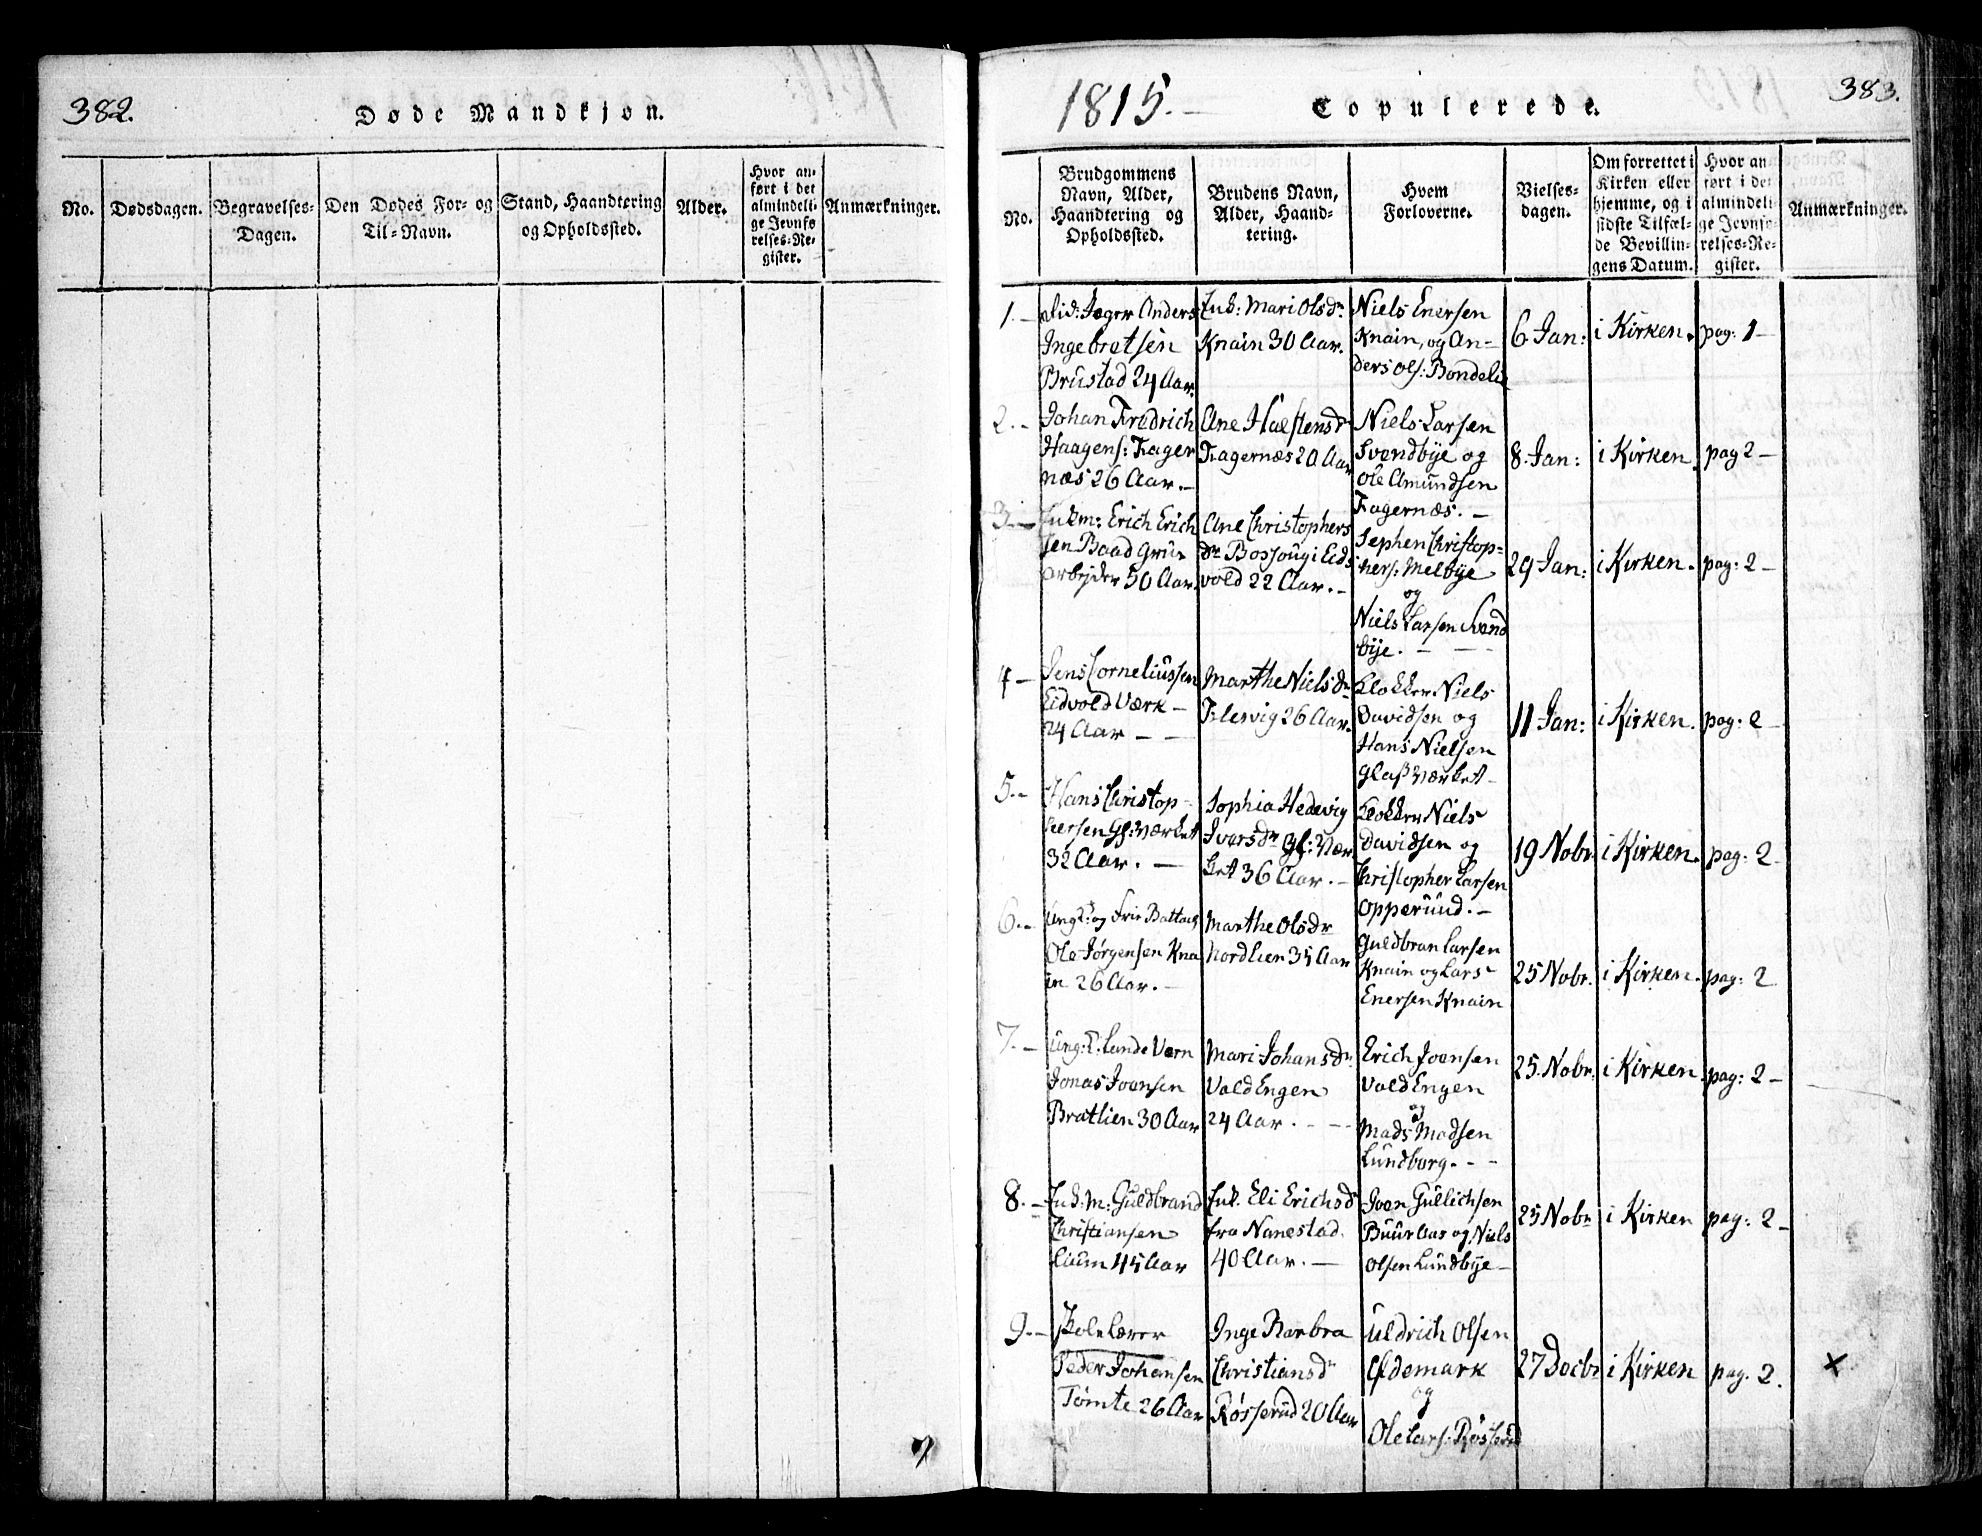 382.
Døde Mandkjøn.
No.
Dødsdagen.
Begravelses-
Dagen.
Den Dødes For- og
Til-Navn.
Stand, Haandtering
og Opholdssted.
Alder.
Hvor an-
ført i det
almindeli-
ge Jevnfø
relses-Re-
gister.
Anmærkninger.
1815.-
Copulerede.
383.
No.
Brudgommens
Navn, Alder,
Haandtering og
Opholdssted.
Brudens Navn,
Alder, Haand-
tering.
Hvem
Forloverne.
Vielses-
dagen.
Om forrettet i
Kirken eller
hjemme, og i
sidste Tilfæl-
de Bevillin-
gens Datum.
Hvor an
ført i det
almindeli-
ge Jevnfø-
relses-Re-
gister.
Anmærkninger.
1.-
Jæger Anders
Ingebretsen
Brustad 24 Aar.
Enk: Mari Olsdr
Knain 30 Aar.
Niels Enersen
Knain, og An-
ders Ols: Bondelie
6 Jan:
i Kirken.
pag: 1-
2.-
Johan Fredrich
Haagens: Fager
næs 26 Aar.-
Ane Halstensdr
Fagernæs 20 Aar
Niels Larsen
Svendbye og
Ole Amundsen
Fagernæs.-
8. Jan:
i Kirken.
pag 2-
3.-
Enkm: Erich Erich
sen Baad Grue
arbejder 50 Aar.
Ane Christophers
dr Bossoug i Eids
vold 22 Aar.-
Sephen Christop=
hers: Melbye
og
Niels Larsen Svend
bye.- - -
29 Jan:
i Kirken.
pag: 2-
4-
Jens Corneliussen
Eidvold Værk-
24 Aar - -
Marthe Nielsdr
Flesvig 26 Aar.
Klokker Niels
Davidsen og
Hans Nielsen
Glaßværket-
11 Jan:
i Kirken.
pag: 2-
5.-
Hans Christop-
hersen Gl: Værket
32 Aar. -
Sophia Hedevig
Iversdr Gl: Vær
ket 36 Aar.-
Klokker Niels
Davidsen og
Christopher Larsen
Opperund.-
19 Nobr.
i Kirken.
pag: 2-
6.-
Ungk: og
Ole Jørgensen Kna
in 26 Aar.-
Marthe Olsdr
Nordlien 35 Aar
Guldbran Larsen
Knain og Lars
Enersen Knain
25 Nobr.
i Kirken.
pag: 2
7.-
Ung: K: Lande Værn
Jonas Joensen
Bratlien 30 Aar
Mari Johansdr
Vold Engen
24 Aar. - - -
Erich Joensen
Vold Engen
og
Mads Madsen
Lundborg.- -
25. Nobr:
i Kirken.
pag: 2-
8.-
Enk: m: Guldbrand
Christiansen
45 Aar
Enk. Eli Erichsdr
fra Nanestad
40 Aar.-
Joen Gullichsen
Buuraas og Niels
Olsen Lundbye-
25 Nobr
i Kirken
pag: 2-
9.-
Skolelærer
Peder Johansen
Tømte 26 Aar
Inge Barbra
Christiansdr
Røsserud 20 Aar
Uldrich Olsen
Ødemark
og
Ole Lars: Røsserud
27 Decbr
i Kirken
pag. 2.
×